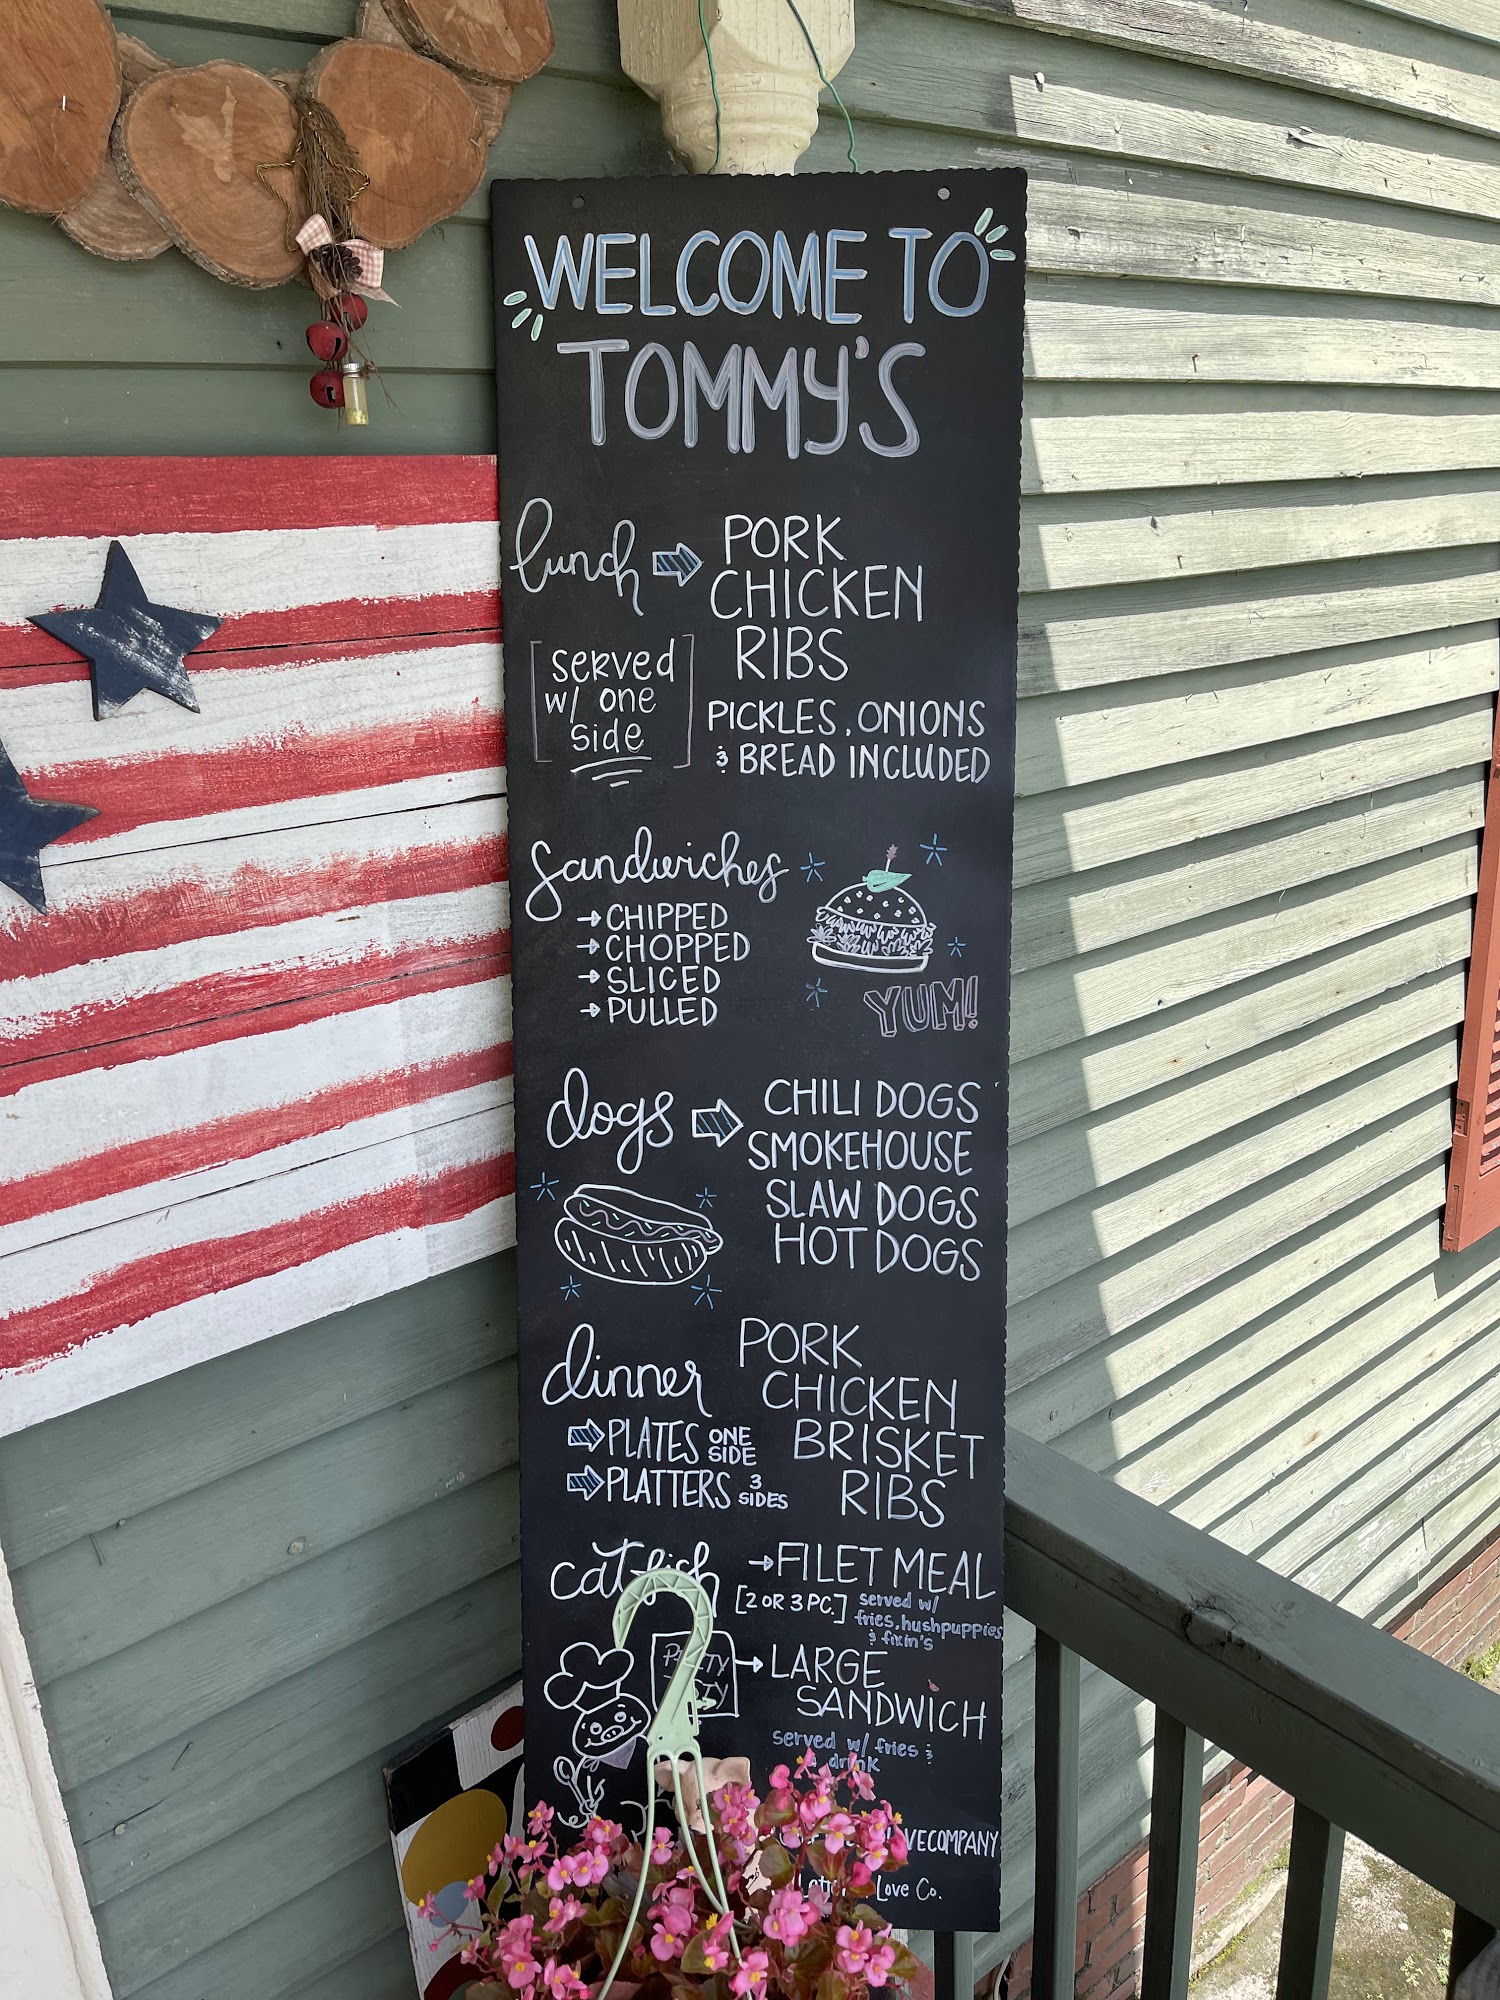 WELCOME TO
TOMMY'S
lunch
PORK
CHICKEN
RIBS
[served
w/ one
side]
PICKLES, ONIONS
& BREAD INCLUDED
sandwiches
CHIPPED
CHOPPED
SLICED
PULLED
YUM!
dogs
CHILI DOGS
SMOKEHOUSE
SLAW DOGS
HOT DOGS
dinner
PLATES ONE SIDE
PLATTERS 3 SIDES
PORK
CHICKEN
BRISKET
RIBS
catfish
FILET MEAL
[2 OR 3 PC.]
served w/
fries, hushpuppies
& fixin's
LARGE
SANDWICH
served w/ fries &
drink
Love Co.